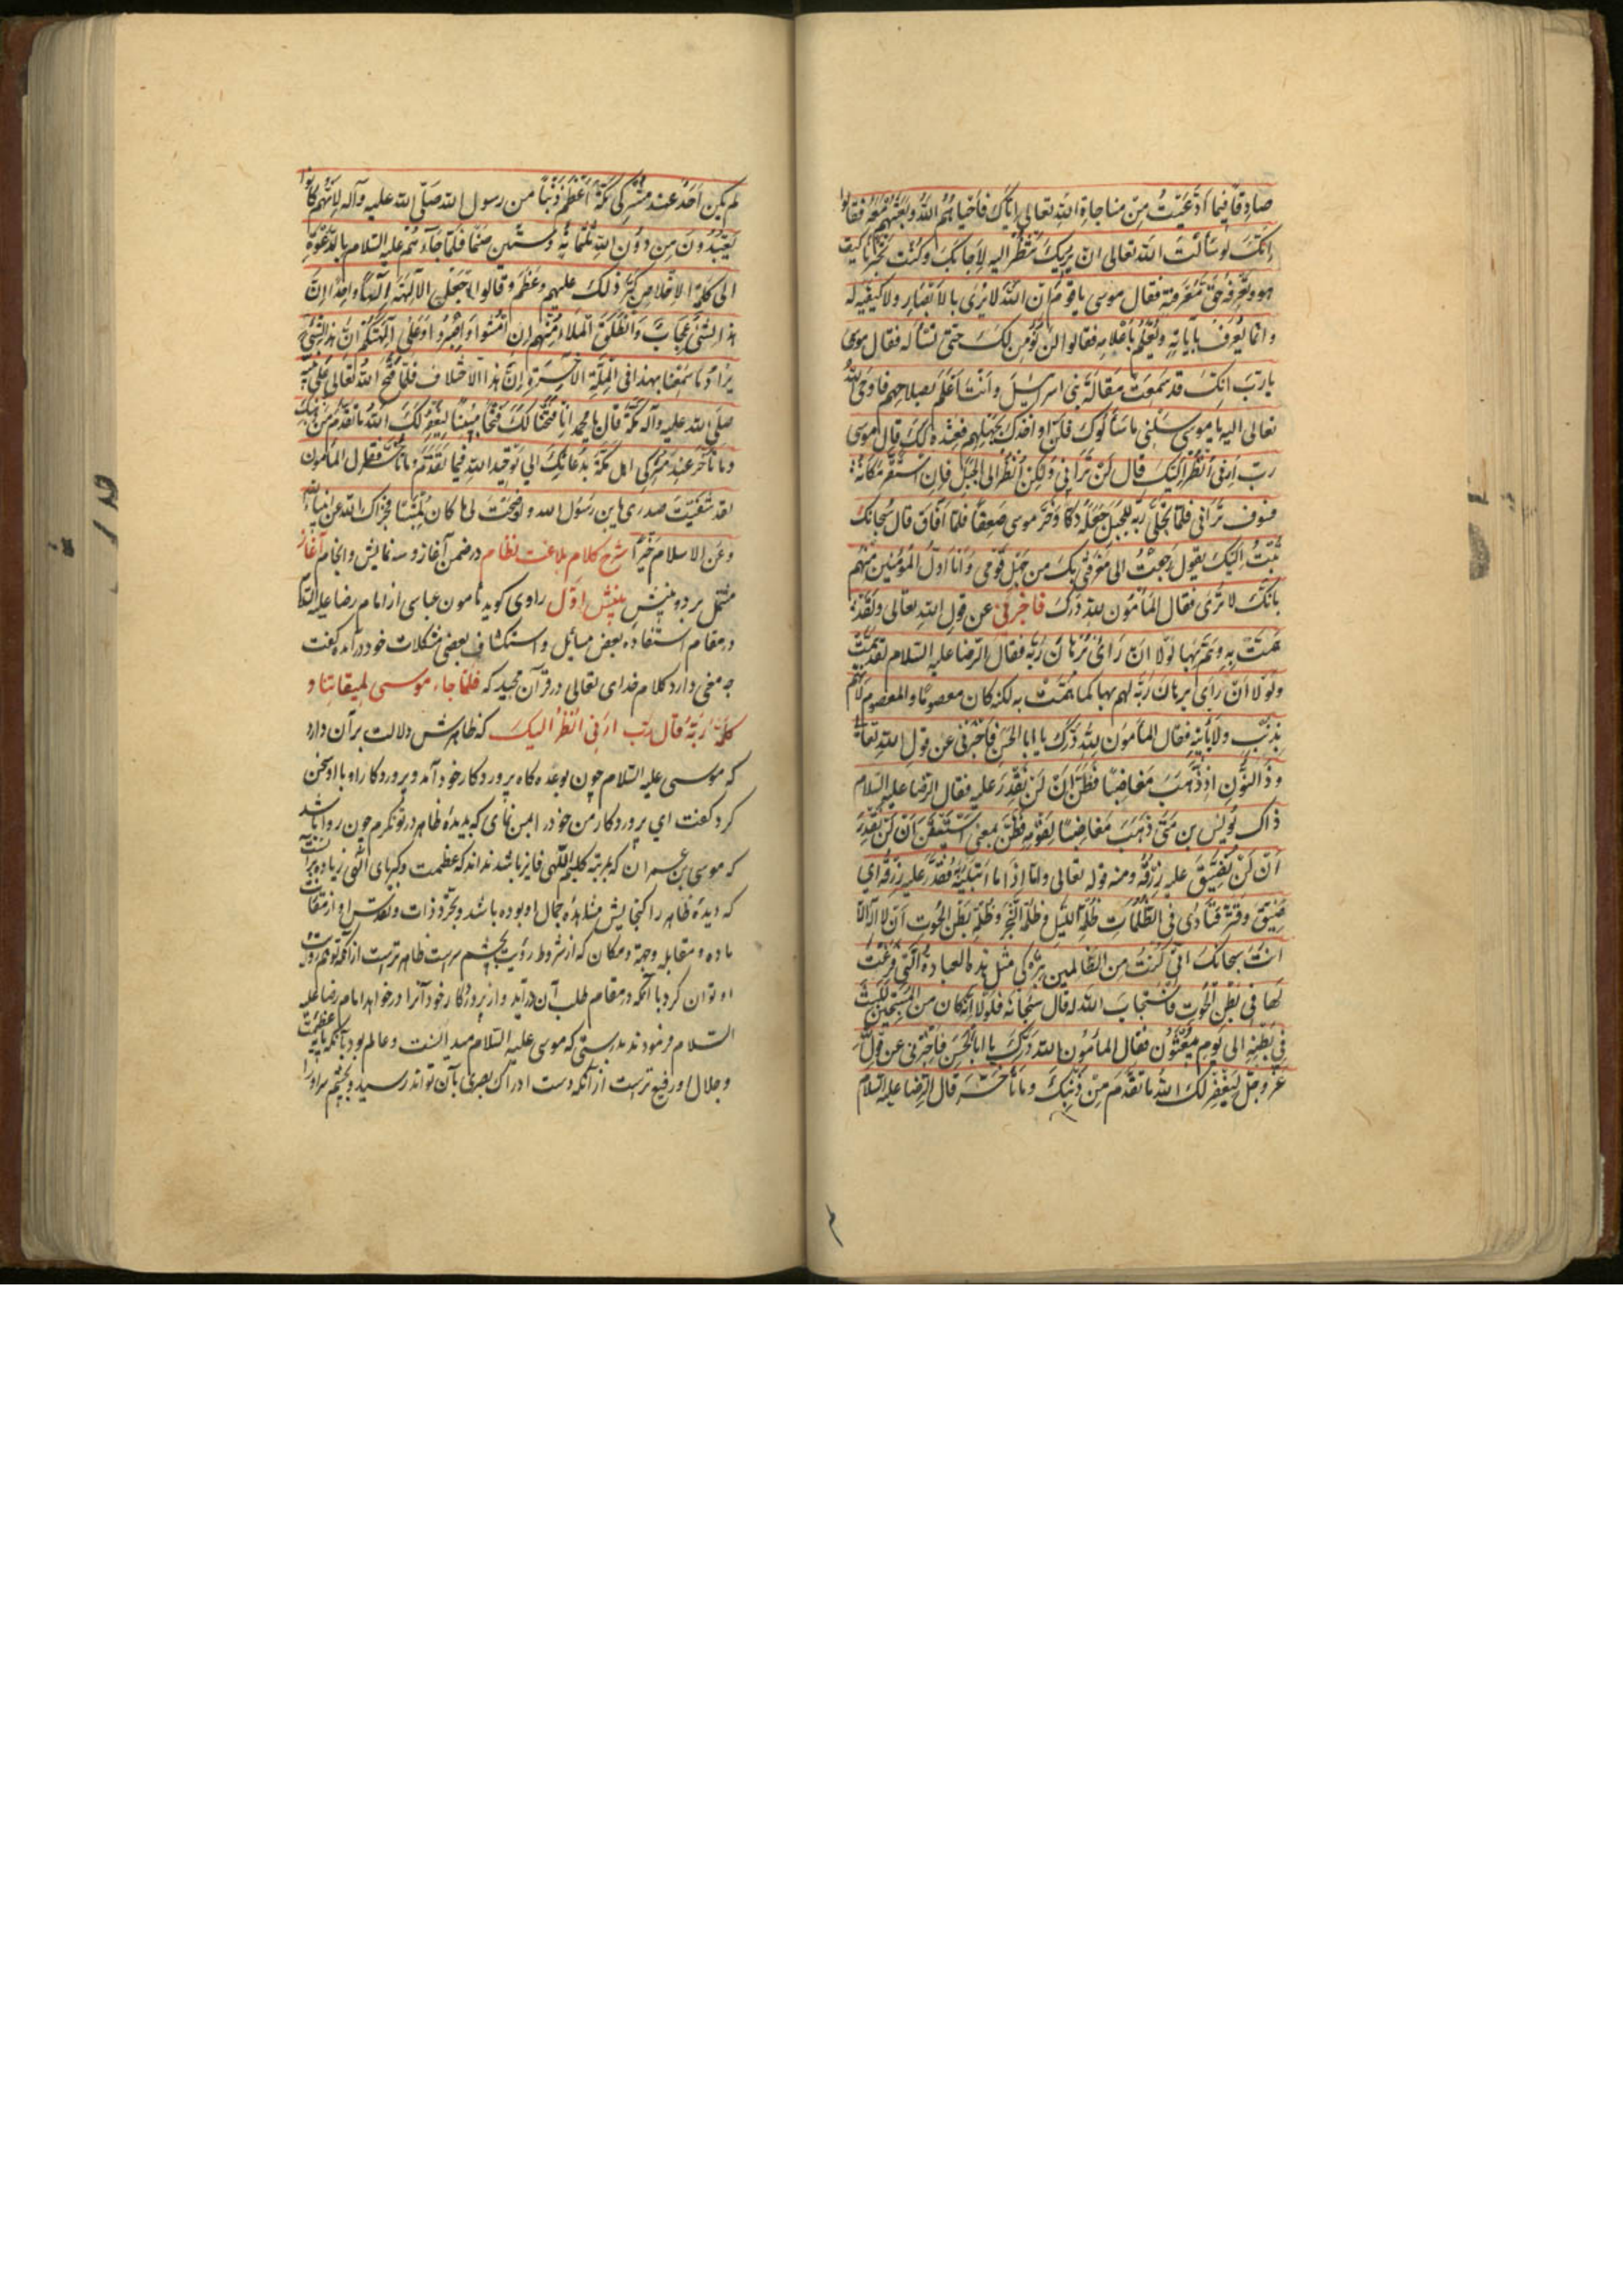 صادقا فیما ادعیت من مناجاة الله تعالی ایاک فاحیاهم الله وبعثهم معه فقالوا
انک لو سألت الله تعالی ان یریک تنظر الیه لاجابک وکنت تخبرنا کیف
هو ونعرفه حق معرفته فقال موسی یا قوم ان الله لا یری بالابصار ولا کیفیة له
وانما یعرف بآیاته ویعلم باعلامه فقالوا لن نؤمن لک حتی تسأله فقال موسی
یا رب انک قد سمعت مقالة بنی اسرائیل وانت اعلم بصلاحهم فاوحی الله
تعالی الیه یا موسی سلنی ما سألوک فلن اواخذک بجهلهم فعند ذلک قال موسی
رب ارنی انظر الیک قال لن ترانی ولکن انظر الی الجبل فان استقر مکانه
فسوف ترانی فلما تجلی ربه للجبل جعله دکا وخر موسی صعقا فلما افاق قال سبحانک
تبت الیک یقول رجعت الی معرفتی بک من جهل قومی وانا اول المؤمنین منهم
بانک لا تری فقال المأمون لله درک فاخبرنی عن قول الله تعالی ولقد
همت به وهم بها لولا ان رای برهان ربه فقال الرضا علیه السلام لقد همت
ولولا ان رای برهان ربه لهم بها کما همت به لکنه کان معصوما والمعصوم لا یهم
بذنب ولا یأتیه فقال المأمون لله درک یا ابا الحسن فاخبرنی عن قول الله تعالی
وذا النون اذ ذهب مغاضبا فظن ان لن نقدر علیه فقال الرضا علیه السلام
ذاک یونس بن متی ذهب مغاضبا لقومه فظن بمعنی استیقن ان لن نقدر
ان لن نضیق علیه رزقه ومنه قوله تعالی واما اذا ما ابتلیه ربه فقدر علیه رزقه ای
ضیق وقتر فنادی فی الظلمات ظلمة اللیل وظلمة البحر وظلمة بطن الحوت ان لا اله الا
انت سبحانک انی کنت من الظالمین بترکی مثل هذه العبادة التی فرغت
لها فی بطن الحوت فاستجاب الله له قال سبحانه فلولا انه کان من المسبحین للبث
فی بطنه الی یوم یبعثون فقال المأمون لله درک یا ابا الحسن فاخبرنی عن قول الله
عز وجل لیغفر لک الله ما تقدم من ذنبک وما تأخر قال الرضا علیه السلام
لم یکن احد عند مشرکی مکة اعظم ذنبا من رسول الله صلی الله علیه وآله لانهم کانوا
یعبدون من دون الله ثلثمایة وستین صنما فلما جاءهم علیه السلام بالدعوة
الی کلمة الاخلاص کبر ذلک علیهم وعظم وقالوا اجعل الآلهة الها واحدا ان
هذا لشئ عجاب وانطلق الملاء منهم ان امشوا واصبروا علی آلهتکم ان هذا لشئ
یراد ما سمعنا بهذا فی الملة الآخرة ان هذا الا اختلاق فلما فتح الله تعالی علی نبیه
صلی الله علیه وآله مکة قال یا محمد انا فتحنا لک فتحا مبینا لیغفر لک الله ما تقدم من ذنبک
وما تأخر عند مشرکی اهل مکة بدعائک الی توحید الله فیما تقدم وما تأخر فقال المأمون
لقد شفیت صدری یابن رسول الله واوضحت لی ما کان ملتبسا فجزاک الله عن انبیائه
وعن الاسلام خیرا شرح کلام بلاغت نظام در ضمن آغاز و سه نمایش و انجام آغاز
مشتمل بر دو بینش بینش اول راوی کوید مامون عباسی از امام رضا علیه السلام
در مقام استفاده بعض مسایل و استکشاف بعضی مشکلات خود در آمده کفت
چه معنی دارد کلام خدای تعالی در قرآن مجید که فلما جاء موسی لمیقاتنا و
کلمه ربه قال رب ارنی انظر الیک که ظاهرش دلالت بر آن دارد
که موسی علیه السلام چون بوعده کاه پروردکار خود آمد و پروردکار او با او سخن
کرد کفت ای پروردکار من خود را بمن نمای که بدیدۀ ظاهر در تو نکرم چون روا باشد
که موسی بن عمران که بمرتبه کلیم اللهی فایز باشد نداند که عظمت و کبریای الهی زیاده بر آنست
که دیدۀ ظاهر را کنجایش مشاهدۀ جمال او بوده باشد و تجرد ذات و تقدس او از
ماده و مقابله و جهة و مکان که از شروط رؤیت بچشم سر است ظاهرتر است از آنکه توهم رؤیت
او توان کرد با آنکه در مقام طلب آن در آید و از پروردکار خود آنرا در خواهد امام رضا علیه
السلام فرمودند بدرستی که موسی علیه السلام میدانست و عالم بود بآنکه پایه عظمت
و جلال او رفیع تر است از آنکه دست ادراک بصری بآن تواند رسید و بچشم سر او را